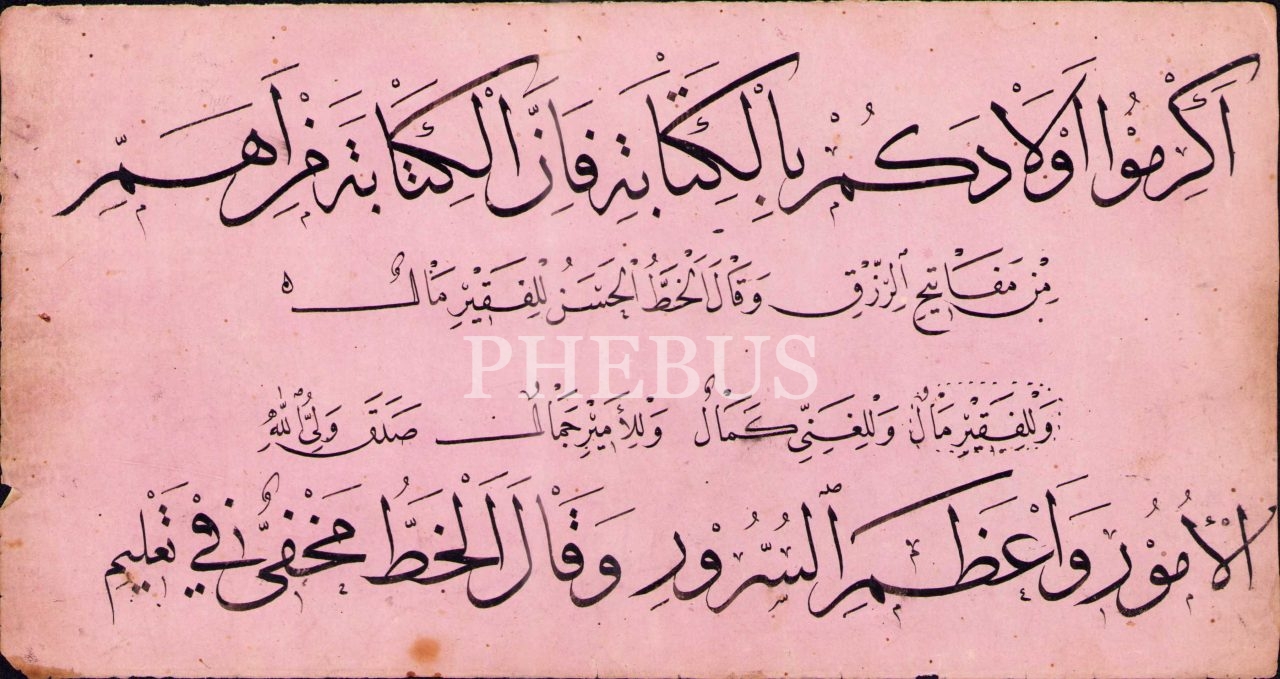 اَكْرِمُوْا اَوْلَادَكُمْ بِالْكِتَابَةِ فَاِنَّ الْكِتَابَةَ مِنْ اَهَمِّ
مِنْ مَفَاتِيْحِ الرِّزْقِ وَقَالَ الْخَطُّ الْحَسَنُ لِلْفَقِيْرِ مَالٌ ه
PHEBUS
وَلِلْفَقِيْرِ مَالٌ وَلِلْغَنِيِّ كَمَالٌ وَلِلْاَمِيْرِ جَمَالٌ صَدَقَ وَلِيُّ اللّٰهِ
الْاُمُوْرِ وَاَعْظَمِ السُّرُوْرِ وَقَالَ الْخَطُّ مَخْفِيٌّ فِيْ تَعْلِيْمِ